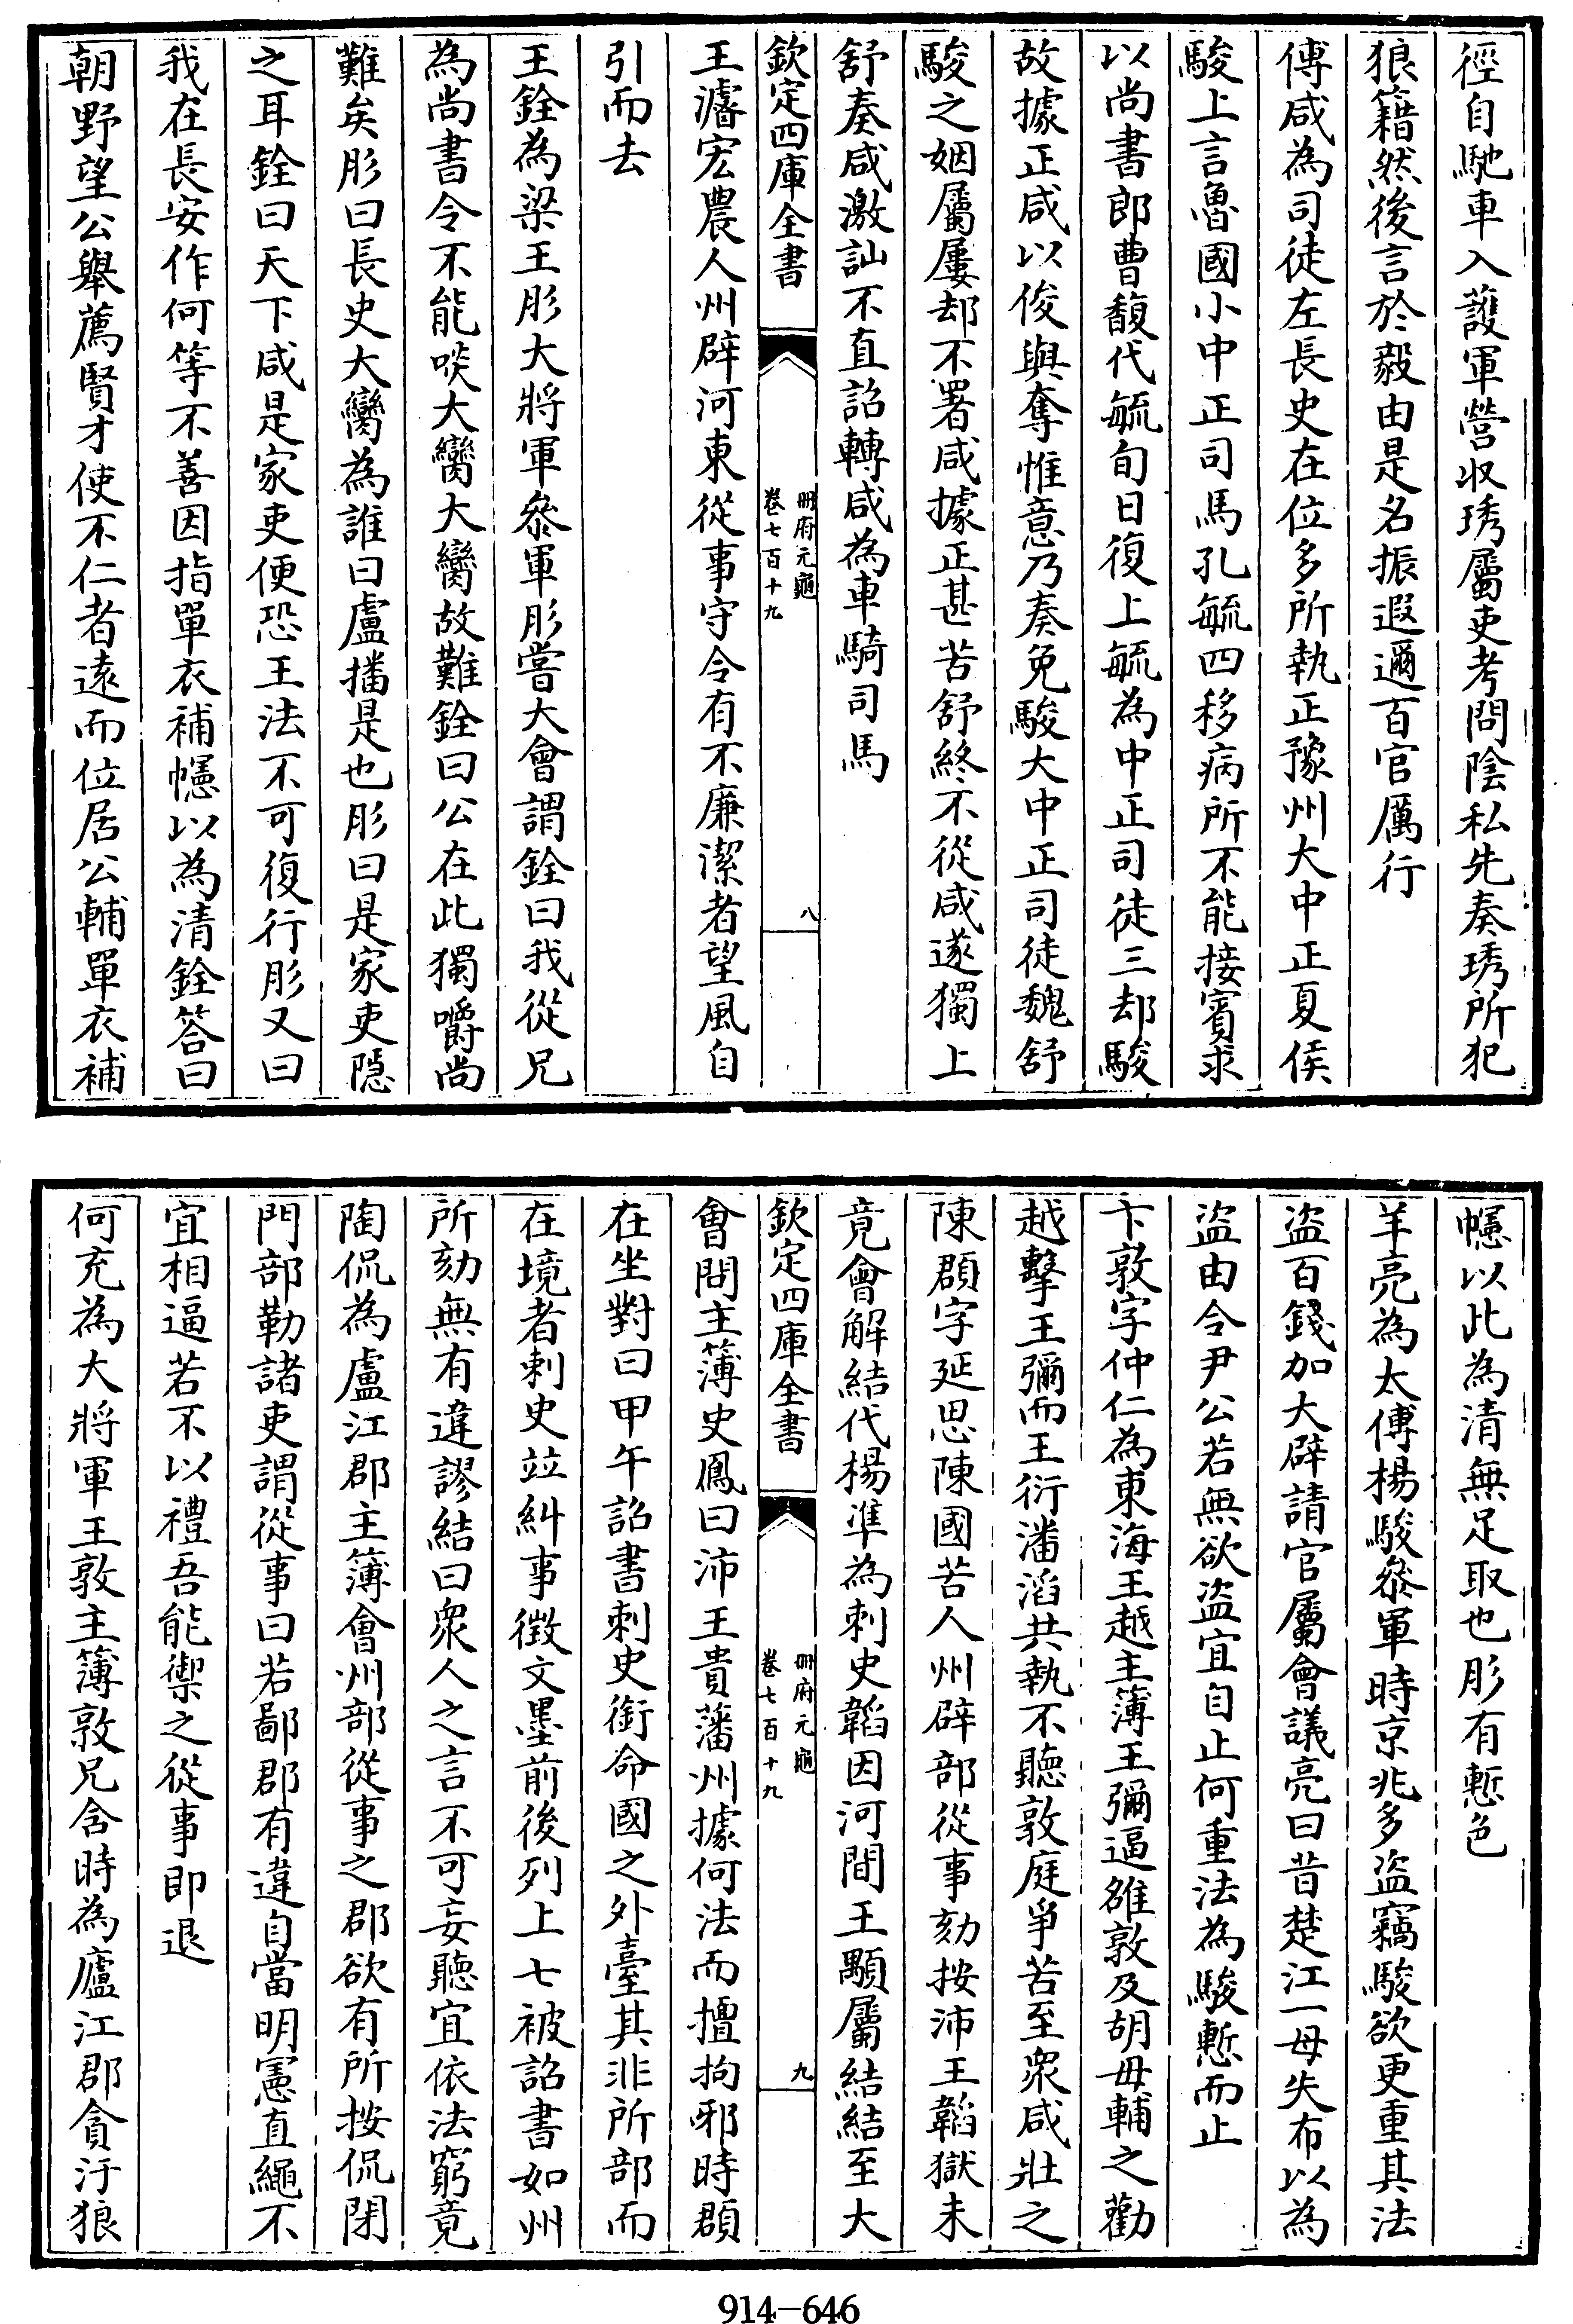 徑自馳車入護軍營收琇屬吏考問陰私先奏琇所犯
狼籍然後言於毅由是名振遐邇百官厲行
傅咸為司徒左長史在位多所執正豫州大中正夏侯
駿上言魯國小中正司馬孔毓四移病所不能接賓求
以尚書郎曹馥代毓旬日復上毓為中正司徒三却駿
故據正咸以俊與奪惟意乃奏免駿大中正司徒魏舒
駿之姻屬屢却不署咸據正甚苦舒終不從咸遂獨上
舒奏咸激訕不直詔轉咸為車騎司馬
欽定四庫全書
冊府元龜
卷七百十九
八
王濬宏農人州辟河東從事守令有不廉潔者望風自
引而去
王銓為梁王肜大將軍參軍肜嘗大會謂銓曰我從兄
為尚書令不能啖大臠大臠故難銓曰公在此獨嚼尚
難矣肜曰長史大臠為誰曰盧播是也肜曰是家吏隱
之耳銓曰天下咸是家吏便恐王法不可復行肜又曰
我在長安作何等不善因指單衣補幰以為清銓答曰
朝野望公舉薦賢才使不仁者遠而位居公輔單衣補
幰以此為清無足取也肜有慙色
羊亮為太傅楊駿參軍時京兆多盜竊駿欲更重其法
盜百錢加大辟請官屬會議亮曰昔楚江一母失布以為
盜由令尹公若無欲盜宜自止何重法為駿慙而止
卞敦字仲仁為東海王越主簿王彌逼雒敦及胡毋輔之勸
越擊王彌而王衍潘滔共執不聽敦庭爭苦至眾咸壯之
陳頵字延思陳國苦人州辟部從事劾按沛王韜獄未
竟會解結代楊準為刺史韜因河間王顒屬結結至大
欽定四庫全書
冊府元龜
卷七百十九
九
會問主簿史鳳曰沛王貴藩州據何法而擅拘邪時頵
在坐對曰甲午詔書刺史銜命國之外臺其非所部而
在境者刺史竝糾事徵文墨前後列上七被詔書如州
所劾無有違謬結曰眾人之言不可妄聽宜依法窮竟
陶侃為廬江郡主簿會州部從事之郡欲有所按侃閉
門部勒諸吏謂從事曰若鄙郡有違自當明憲直繩不
宜相逼若不以禮吾能禦之從事即退
何充為大將軍王敦主簿敦兄含時為廬江郡貪汙狼
914-646